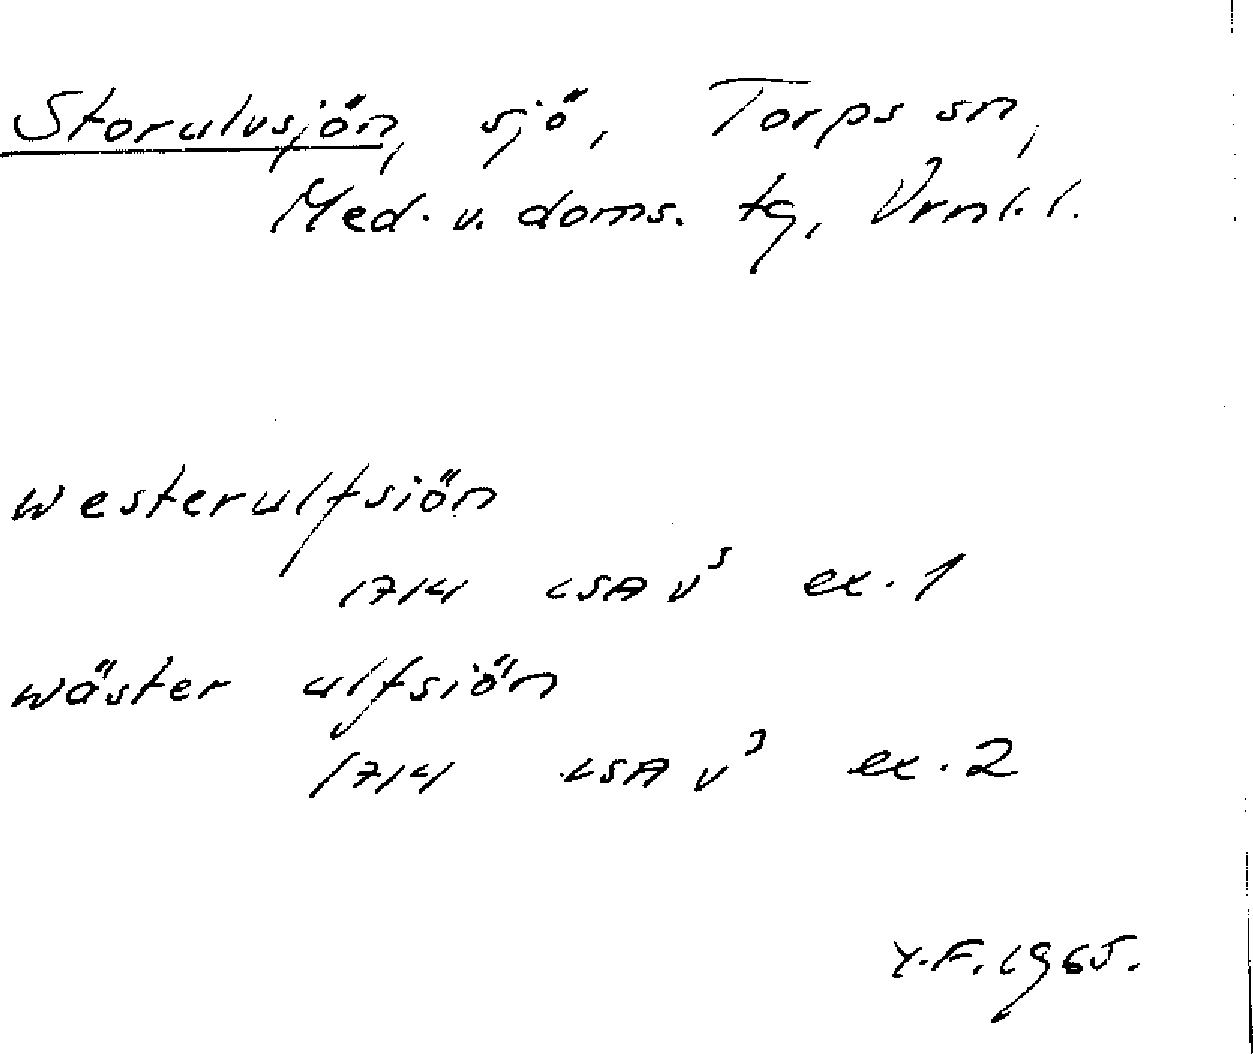 Storulvsjön, sjö, Torps sn,
Med. v. doms. tg, Vrnl. l.
westerulfsiön
1714 LSA V³ ex. 1
wäster ulfsiön
1714 LSA V³ ex. 2
Y.F. 1965.